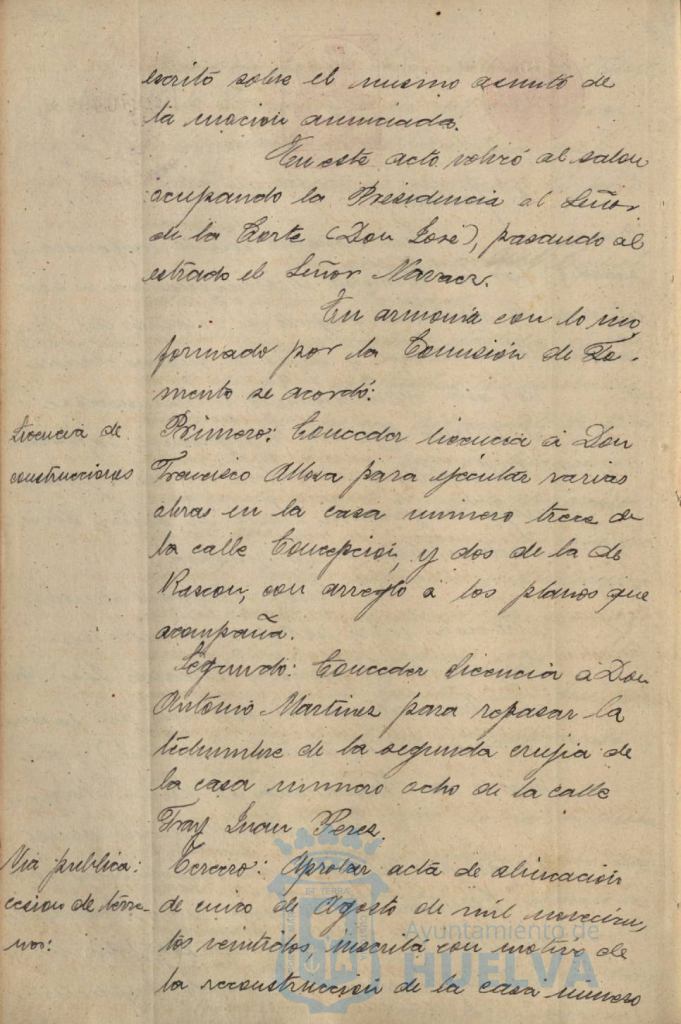 escrito sobre el mismo asunto de
la mocion anunciada.
En este acto volvió al salon
ocupando la Presidencia el Señor
de la Corte (Don José), pasando al
estrado el Señor
En armonia con lo in-
formado por la Comisión de Fo-
mento se acordó:
Licencia de
construcciones
Primero: Conceder licencia á Don
Francisco para ejecutar varias
obras en la casa número trece de
la calle Concepcion, y dos de la de
Rascon, con arreglo á los planos que
acompaña.
Segundo: Conceder licencia á Don
Antonio Martinez para repasar la
techumbre de la segunda crujia de
la casa numero ocho de la calle
Fray Juan Perez.
Via publica:
cesion de terre-
nos:
Tercero: Aprobar acta de alineacion
de cinco de Agosto de mil novecien-
tos veintidos, inscrita con motivo de
la reconstruccion de la casa numero
Ayuntamiento de
HUELVA